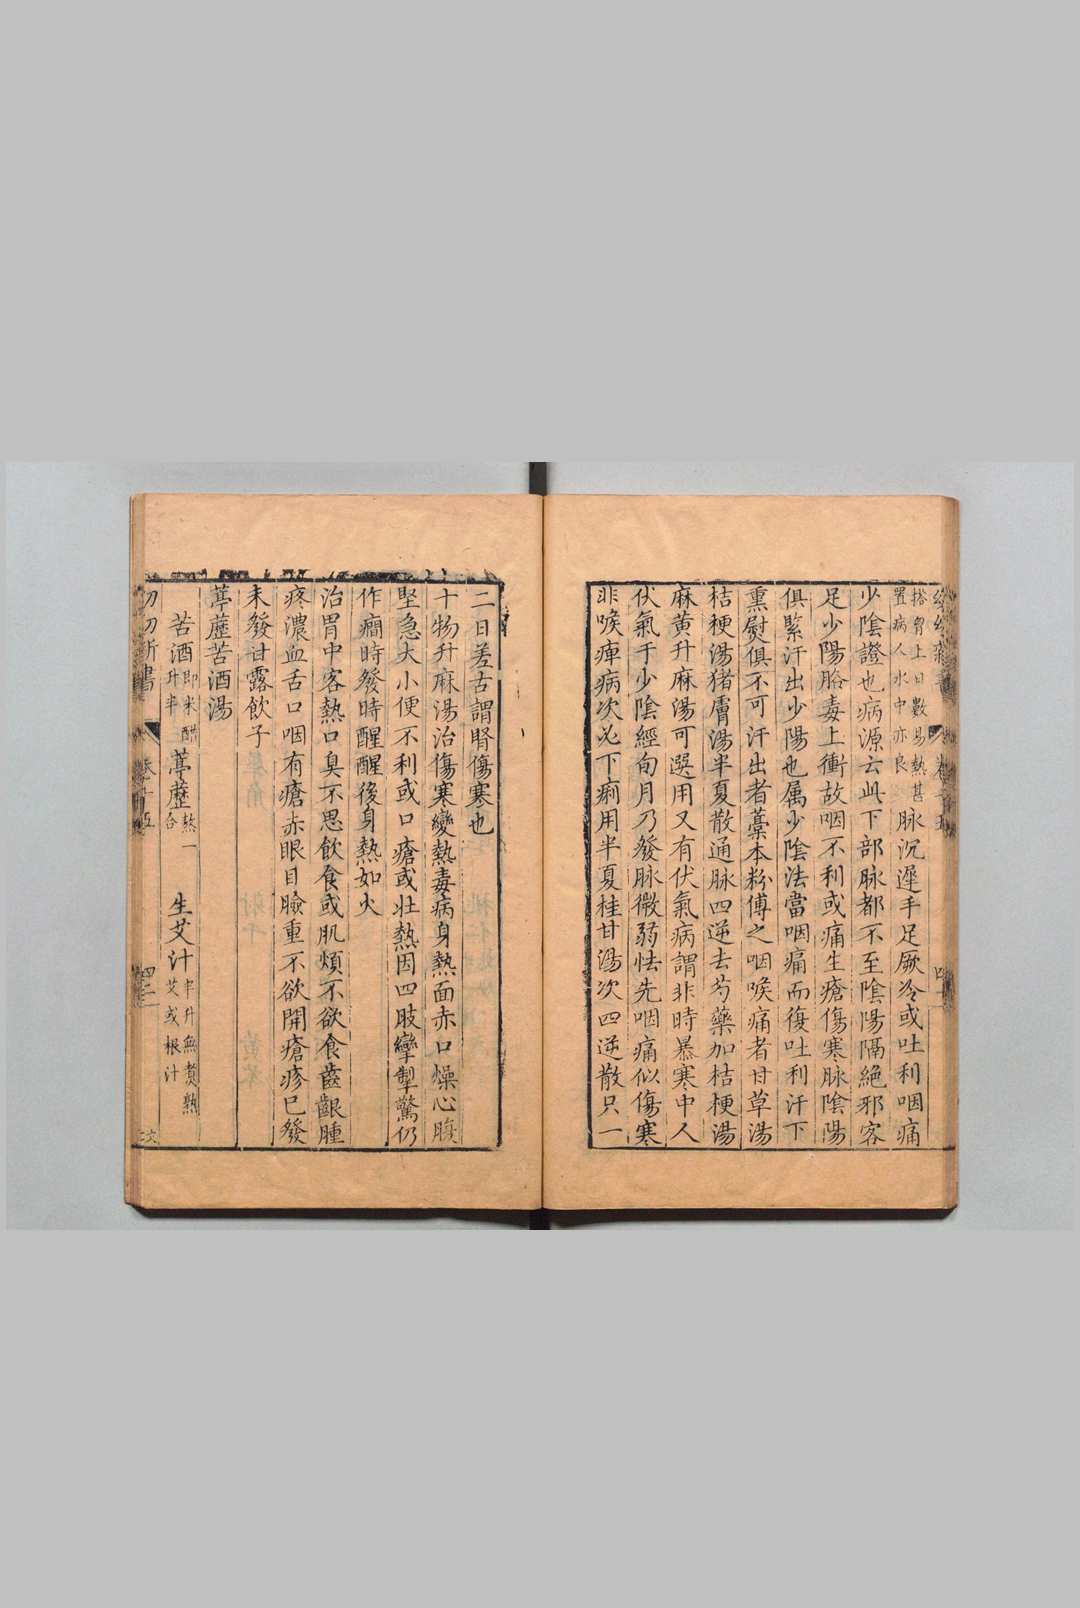 搭胷上日數易熱甚
置病人水中亦良
脉沉遲手足厥冷或吐利咽痛
少陰證也病源云此下部脉都不至陰陽隔絶邪客
足少陽胎毒上衝故咽不利或痛生瘡傷寒脉陰陽
俱緊汗出少陽也属少陰法當咽痛而復吐利汗下
熏熨俱不可汗出者藁本粉傅之咽喉痛者甘草湯
桔梗湯猪膚湯半夏散通脉四逆去芍藥加桔梗湯
麻黄升麻湯可選用又有伏氣病謂非時暴寒中人
伏氣于少陰經旬月乃發脉微弱怯先咽痛似傷寒
非喉痺病次必下痢用半夏桂甘湯次四逆散只一
二日差古謂腎傷寒也
十物升麻湯治傷寒變熱毒病身熱面赤口燥心腹
堅急大小便不利或口瘡或壮熱因四肢攣掣驚仍
作癎時發時醒醒後身熱如火
治胃中客熱口臭不思飲食或肌煩不欲食齒齦腫
疼濃血舌口咽有瘡赤眼目瞼重不欲開瘡疹已發
未發甘露飲子
葶藶苦酒湯
苦酒
即米醋
升半
葶藶
熬一
合
生艾汁
半升無煑熟
艾或根汁
幼幼新書 卷十五 四二